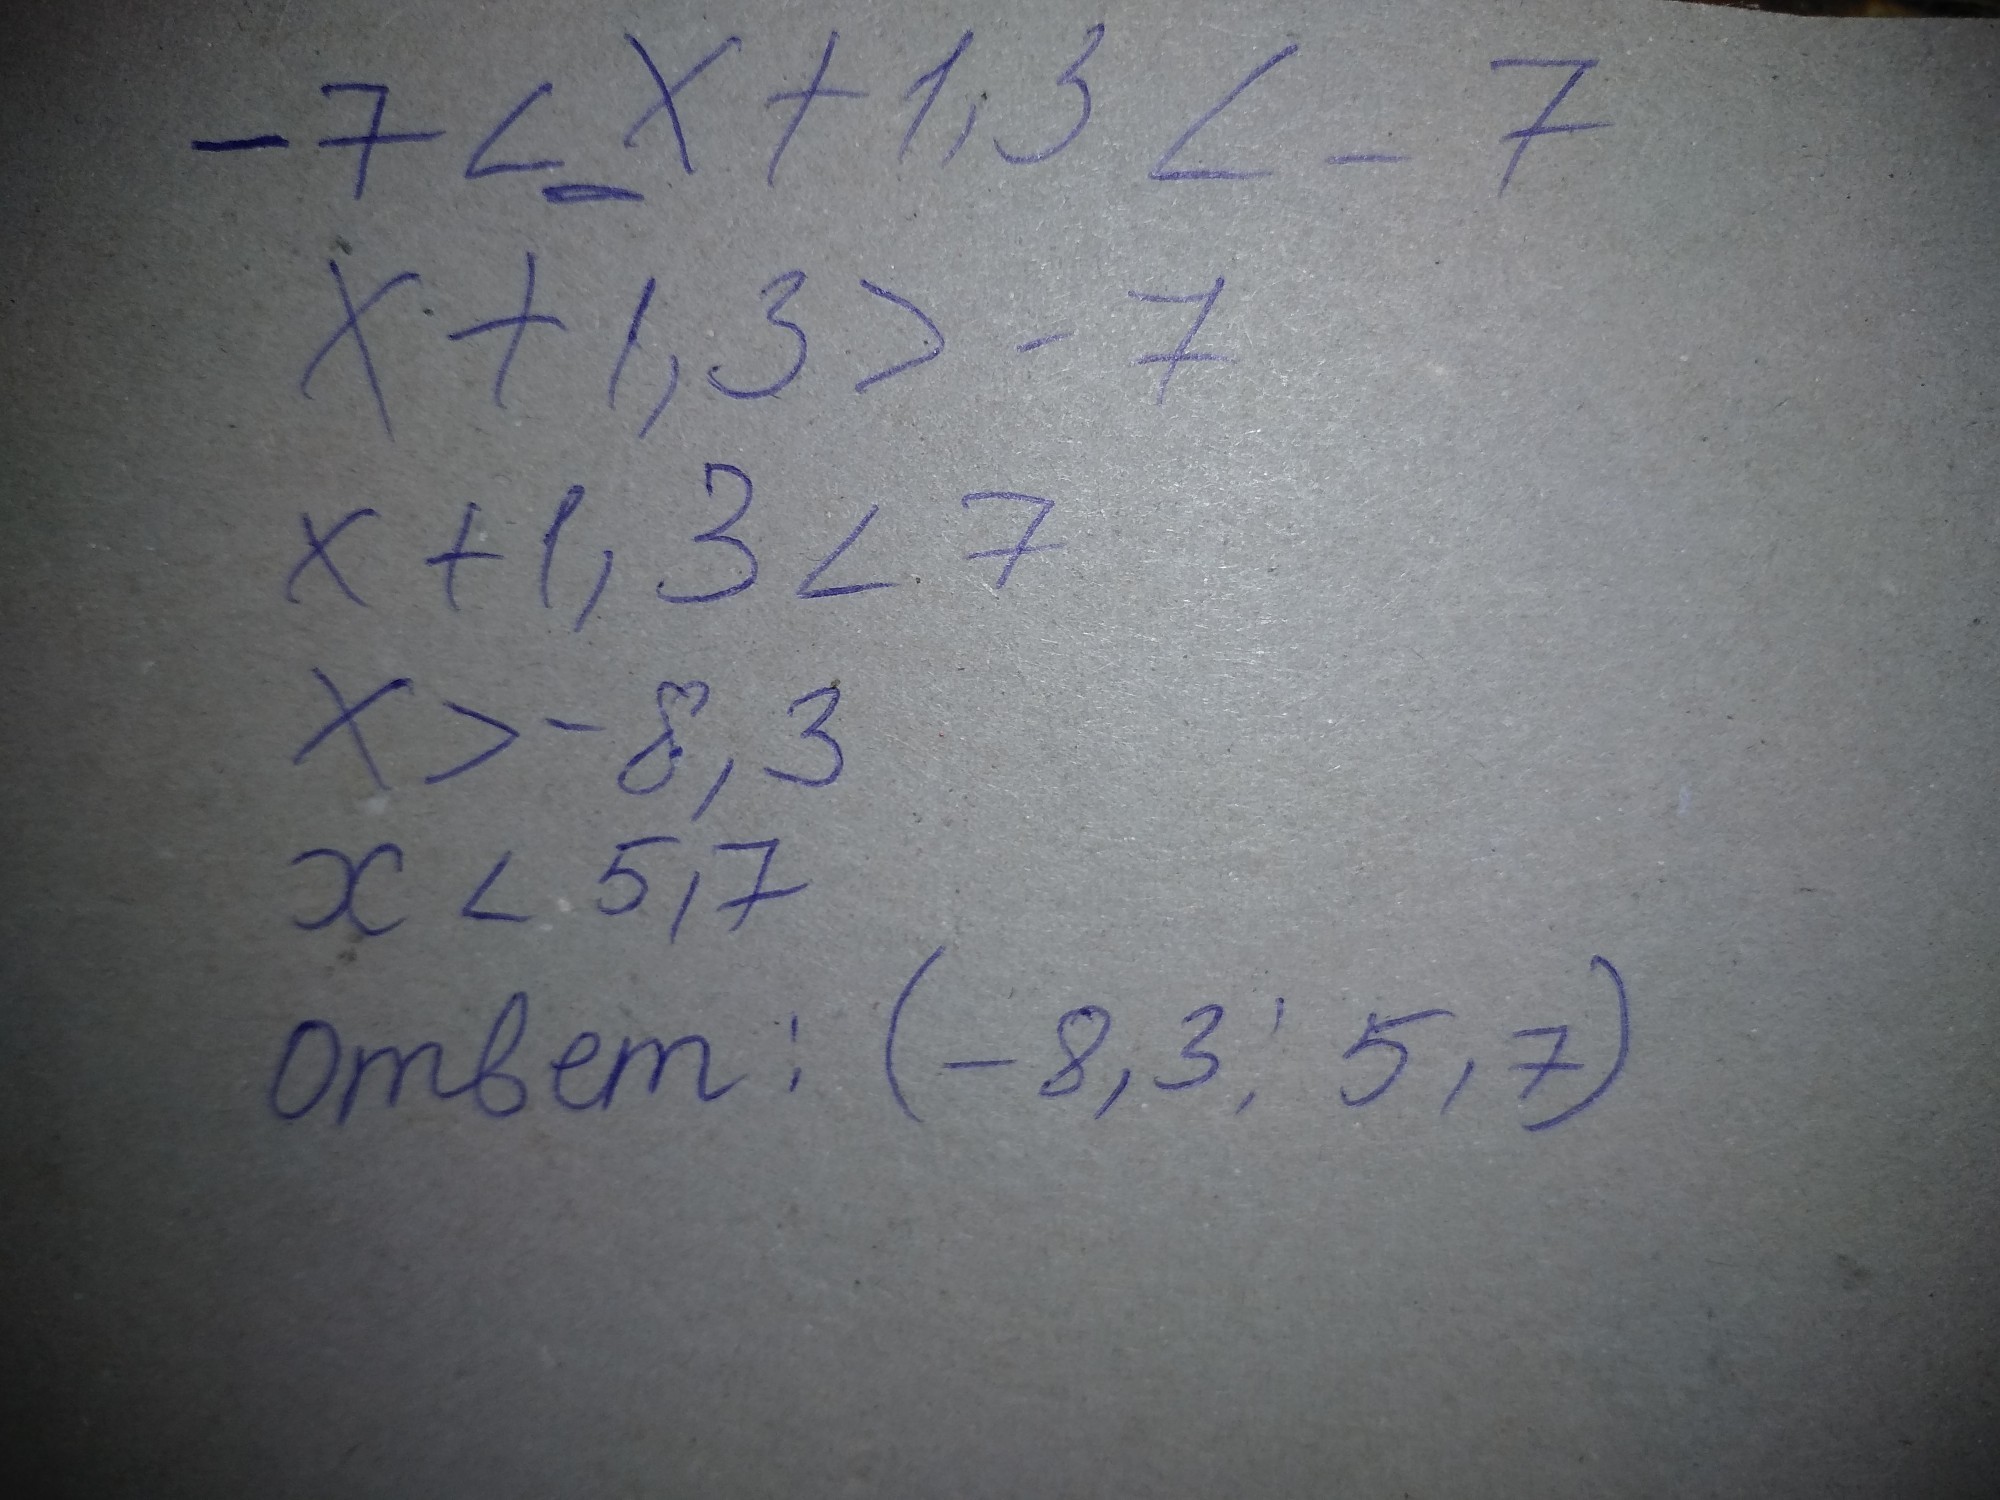 -7 < -x + 1,3 < -7
x + 1,3 > -7
x + 1,3 < 7
x > -8,3
x < 5,7
ответ: (-8,3; 5,7)